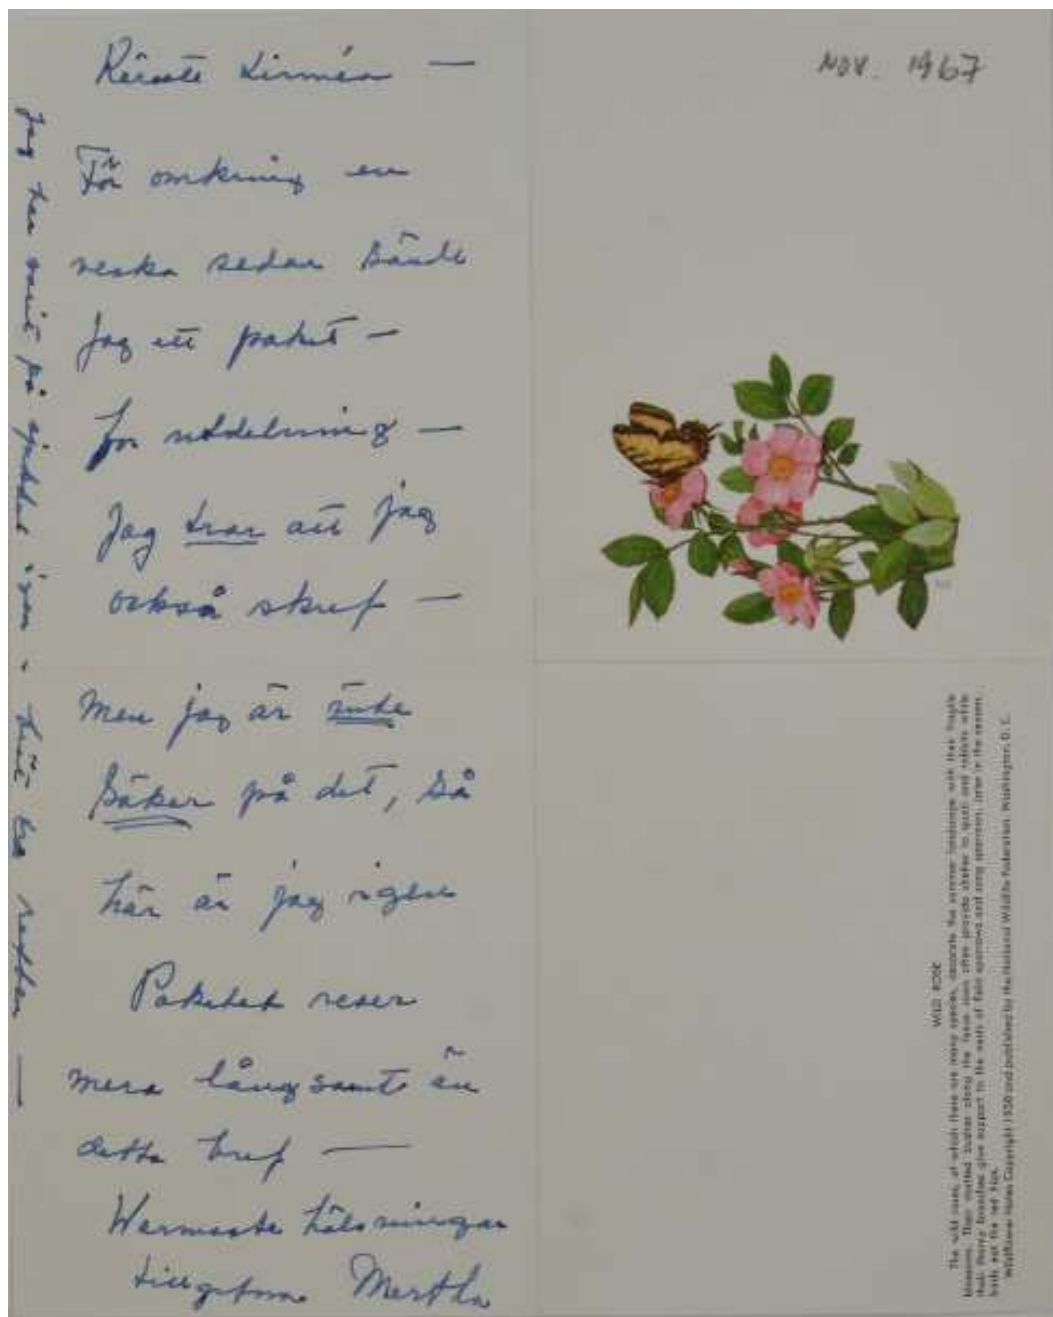 Käraste Linnéa —
För omkring en
vecka sedan sände
Jag ett paket —
för utdelning —
Jag tror att jag
också skref —
Men jag är inte
säker på det, så
här är jag igen
Paketet reser
mera långsamt än
detta bref —
Warmaste hälsningar
tillgifvna Mertha
Jag har varit på sjukhus igen
NOV. 1967
WILD ROSE
The wild roses, of which there are many species, decorate the summer landscape with their fragile
blossoms. Their matted bushes along the fence rows often provide shelter to quail and rabbits while
their thorny branches give support to the nests of field sparrows and song sparrows. Later in the season,
birds eat the red hips.
Wildflower Notes Copyright 1950 and published by the National Wildlife Federation, Washington, D. C.